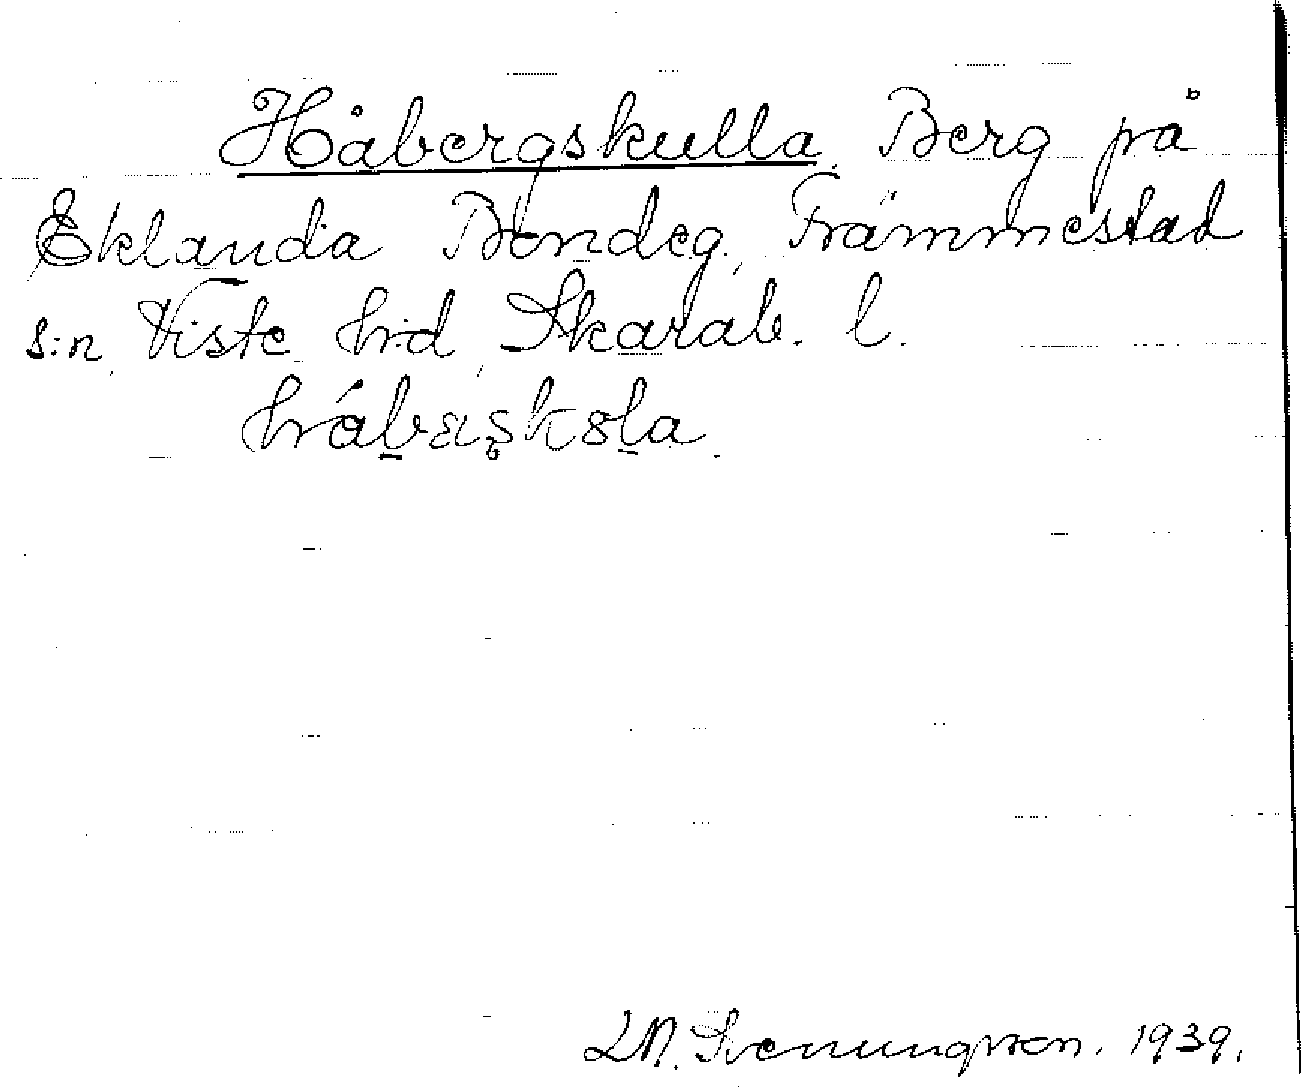 Håbergskulla. Berg på
Eklanda Bondeg., Främmestad
s:n, Viste hrd, Skarab. l.
hábæskola.
LM. Svenungsson. 1939.